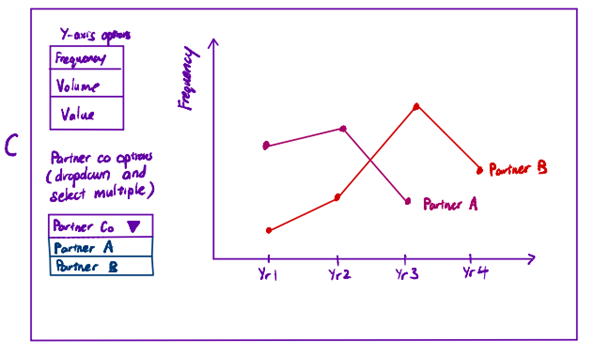 C
Y-axis options
Frequency
Volume
Value
Partner co options
(dropdown and
select multiple)
Partner Co
Partner A
Partner B
Frequency
Partner B
Partner A
Yr1
Yr2
Yr3
Yr4